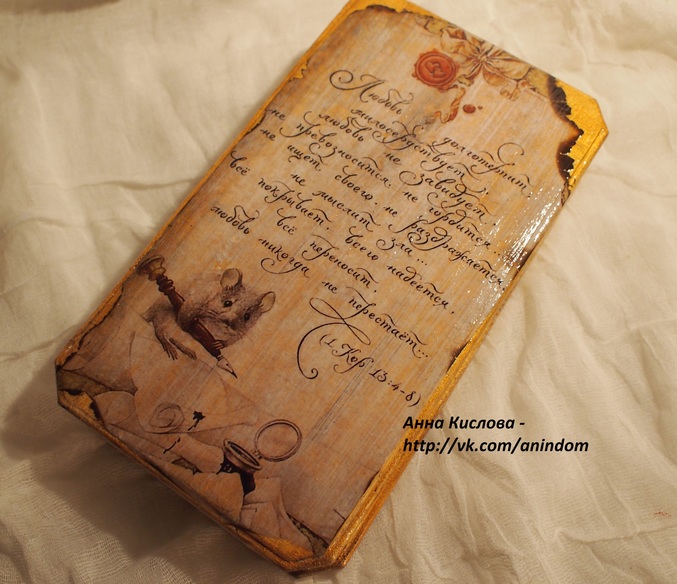 Любовь долготерпит,
милосердствует,
любовь не завидует,
не превозносится, не гордится...
не ищет своего, не раздражается,
не мыслит зла...
всё покрывает, всего надеется,
всё переносит,
любовь никогда не перестаёт...
(1 Кор 13:4-8)
Анна Кислова -
http://vk.com/anindom